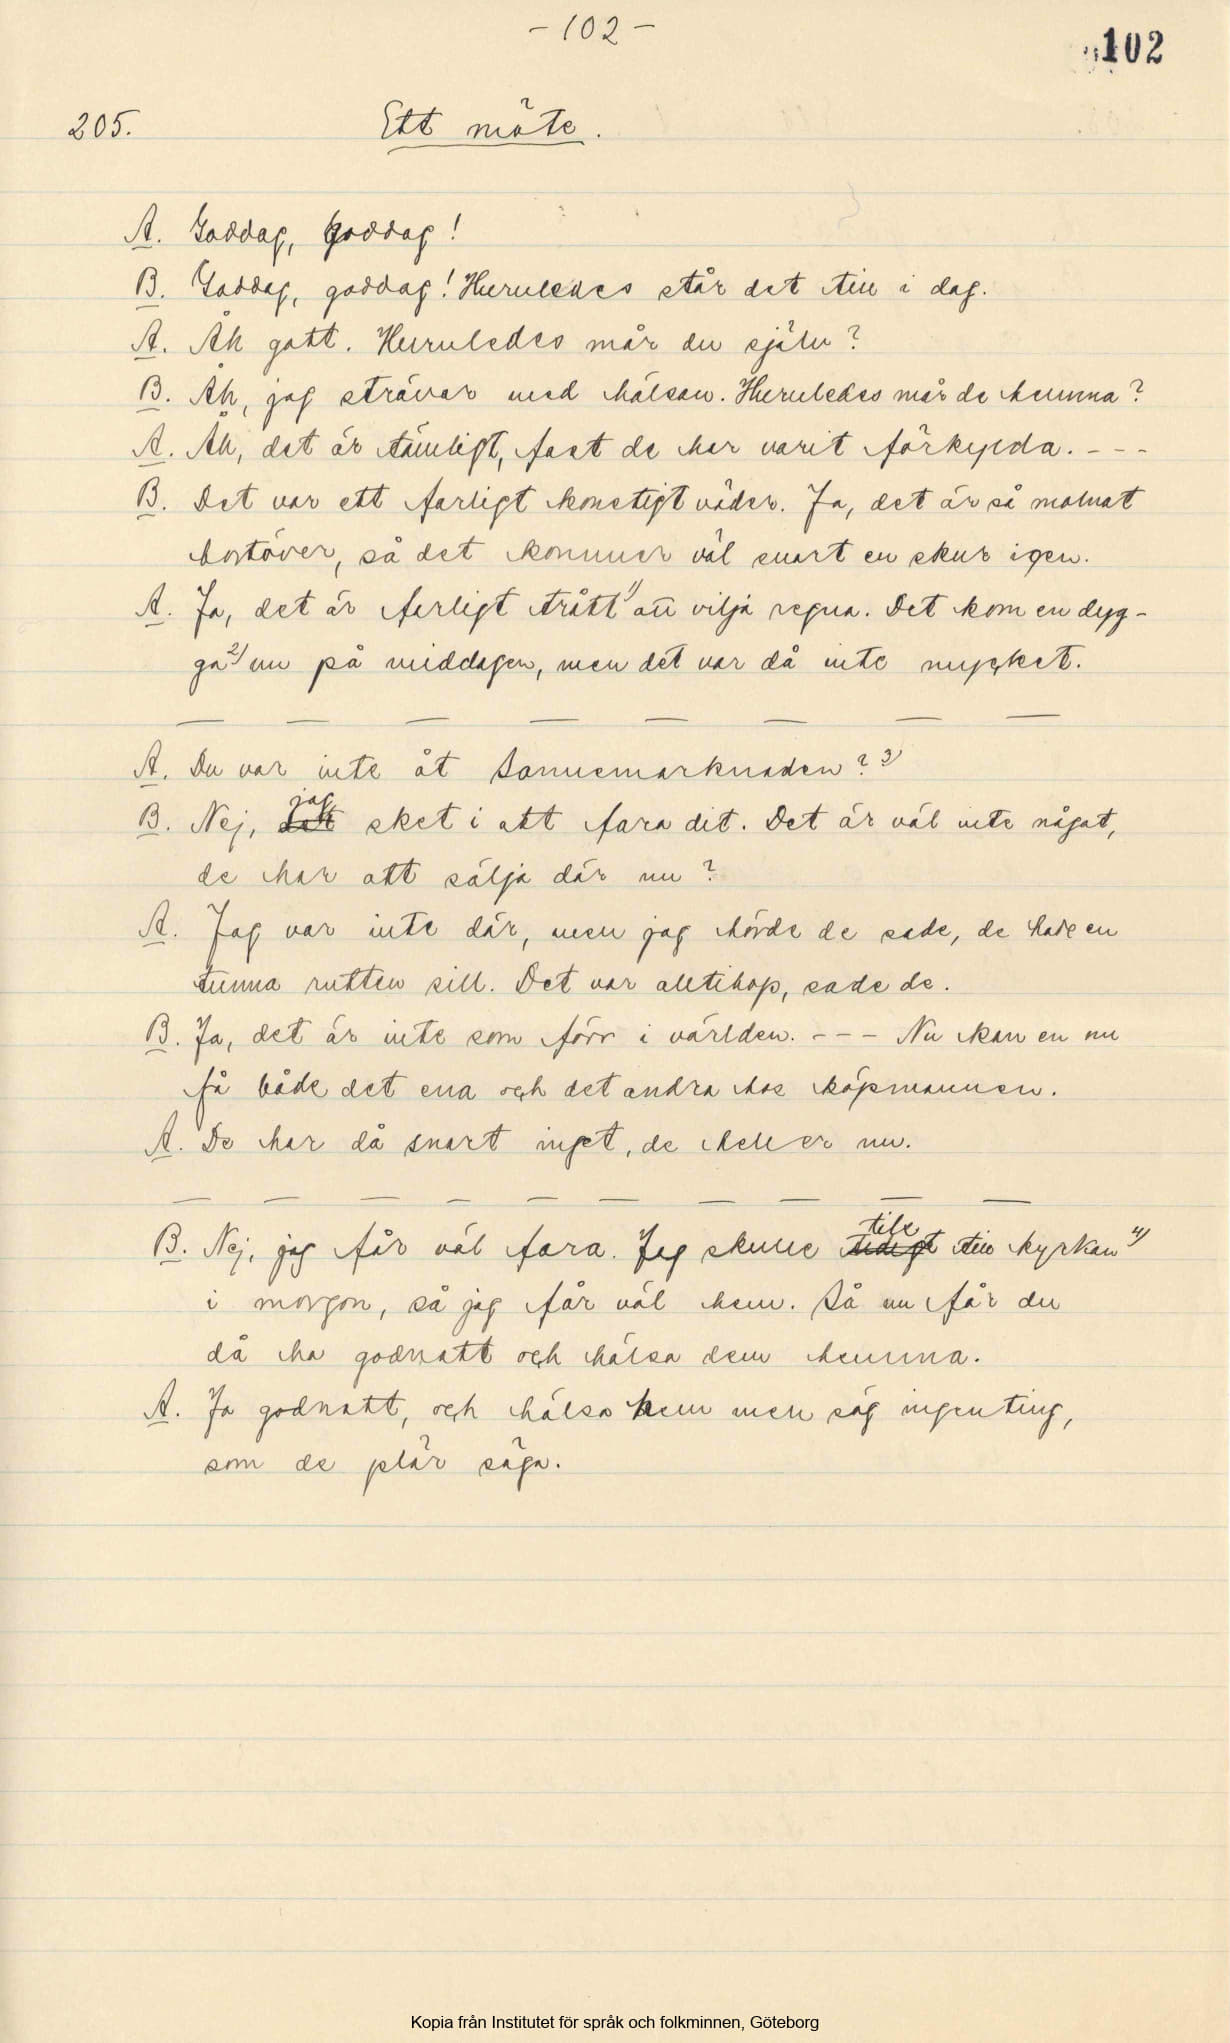 - 102 -
102
205. Ett möte.
A. Goddag, goddag!
B. Goddag, goddag! Huruledes står det till i dag.
A. Åh gott. Huruledes mår du själv?
B. Åh, jag strävar med hälsan. Huruledes mår de hemma?
A. Åh, det är tämligt, fast de har varit förkylda. - - -
B. Det var ett farligt konstigt väder. Ja, det är så molnat
bortöver, så det kommer väl snart en skur igen.
A. Ja, det är farligt trått 1) att vilja regna. Det kom en dyg-
ga 2) nu på middagen, men det var då inte mycket.
— — — — — — — —
A. Du var inte åt Sannemarknaden? 3)
B. Nej, jag sket i att fara dit. Det är väl inte något,
de har att sälja där nu?
A. Jag var inte där, men jag hörde de sade, de hade en
tunna rutten sill. Det var alltihop, sade de.
B. Ja, det är inte som förr i världen. - - - Nu kan en nu
få både det ena och det andra hos köpmannen.
A. De har då snart inget, de heller nu.
— — — — — — — — — —
B. Nej, jag får väl fara. Jag skulle tile till kyrkan 4)
i morgon, så jag får väl hem. Så nu får du
då ha godnatt och hälsa dem hemma.
A. Ja godnatt, och hälsa hem men säg ingenting,
som de plär säga.
Kopia från Institutet för språk och folkminnen, Göteborg